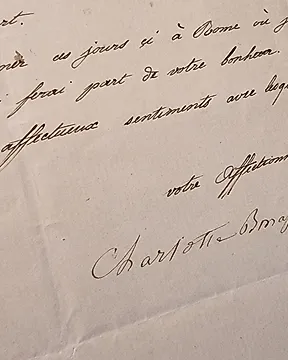 rt.
ces jours ci à Rome où j
ferai part de votre bonheur.
affectueux sentiments avec lesq
votre affection
Charlotte Bonap